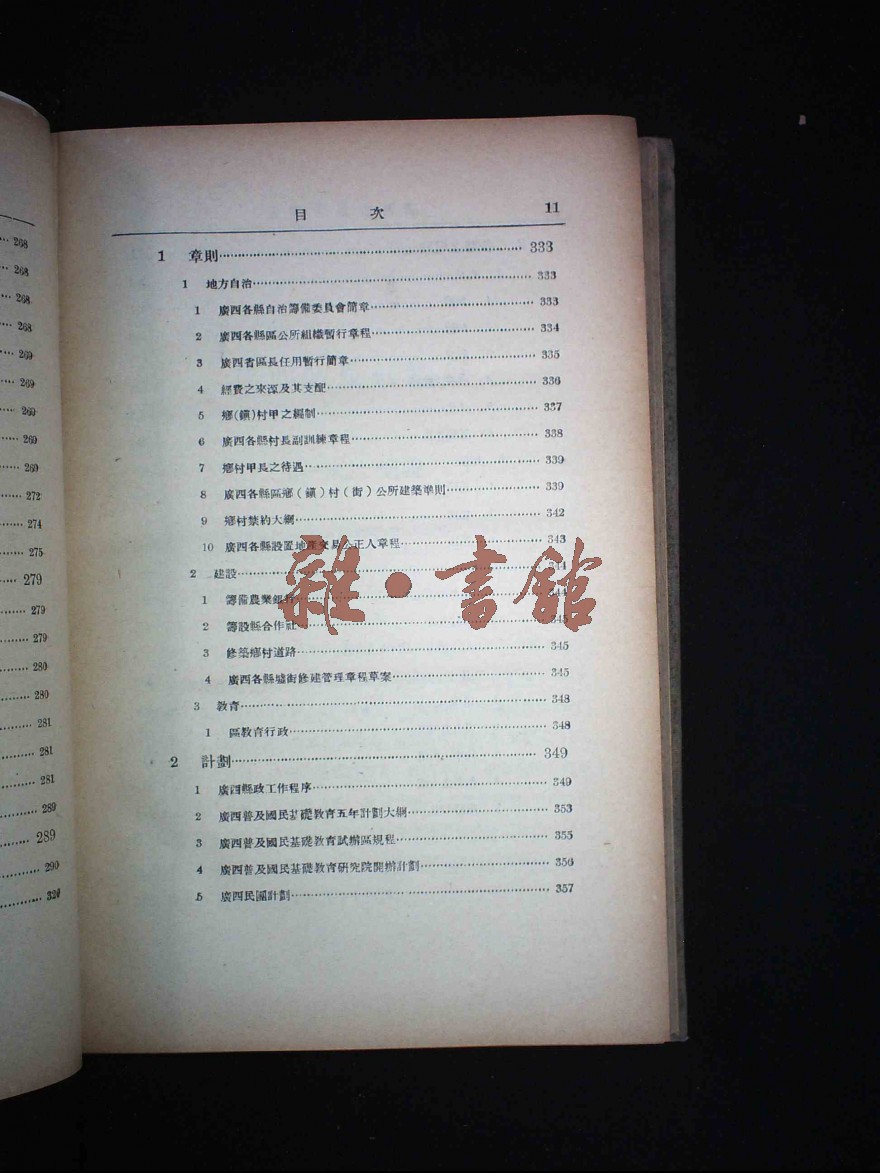 268
268
268
268
269
269
269
269
269
272
274
275
279
279
279
280
280
281
281
281
289
289
290
目次 11
1 章則 333
1 地方自治 333
1 廣西各縣自治籌備委員會簡章 333
2 廣西各縣區公所組織暫行章程 334
3 廣西省區長任用暫行簡章 335
4 經費之來源及其支配 336
5 鄉(鎮)村甲之編制 337
6 廣西各縣村長副訓練章程 338
7 鄉村甲長之待遇 339
8 廣西各縣區鄉(鎮)村(街)公所建築準則 339
9 鄉村禁約大綱 342
10 廣西各縣設置地產交易公正人章程 343
2 建設 344
1 籌備農業銀行 344
2 籌設縣合作社 345
3 修築鄉村道路 345
4 廣西各縣墟街修建管理章程草案 345
3 教育 348
1 區教育行政 348
2 計劃 349
1 廣西縣政工作程序 349
2 廣西普及國民基礎教育五年計劃大綱 353
3 廣西普及國民基礎教育試辦區規程 355
4 廣西普及國民基礎教育研究院開辦計劃 356
5 廣西民團計劃 357
雜·書館